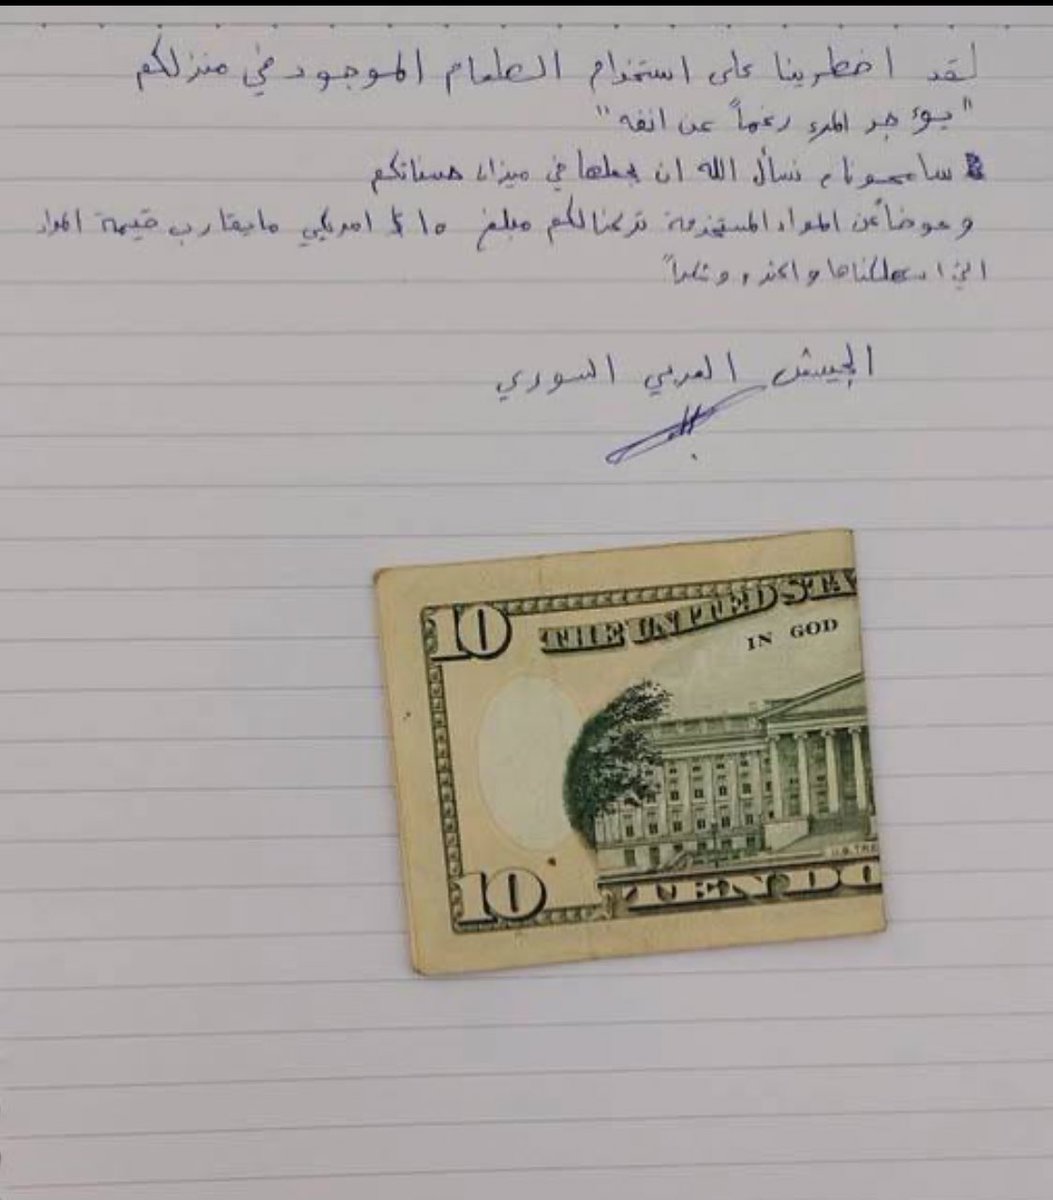 لقد اضطرينا على استخدام الطعام الموجود في منزلكم
"يؤجر المرء رغماً عن انفه"
سامحونا، نسأل الله ان يجعلها في ميزان حسناتكم
وعوضاً عن المواد المستخدمة تركنا لكم مبلغ 10 $ امريكي مايقارب قيمة المواد
التي استهلكناها واكثر، وشكراً
الجيش العربي السوري
10 THE UNITED STA
IN GOD
U.S. TRE
10 TEN DO